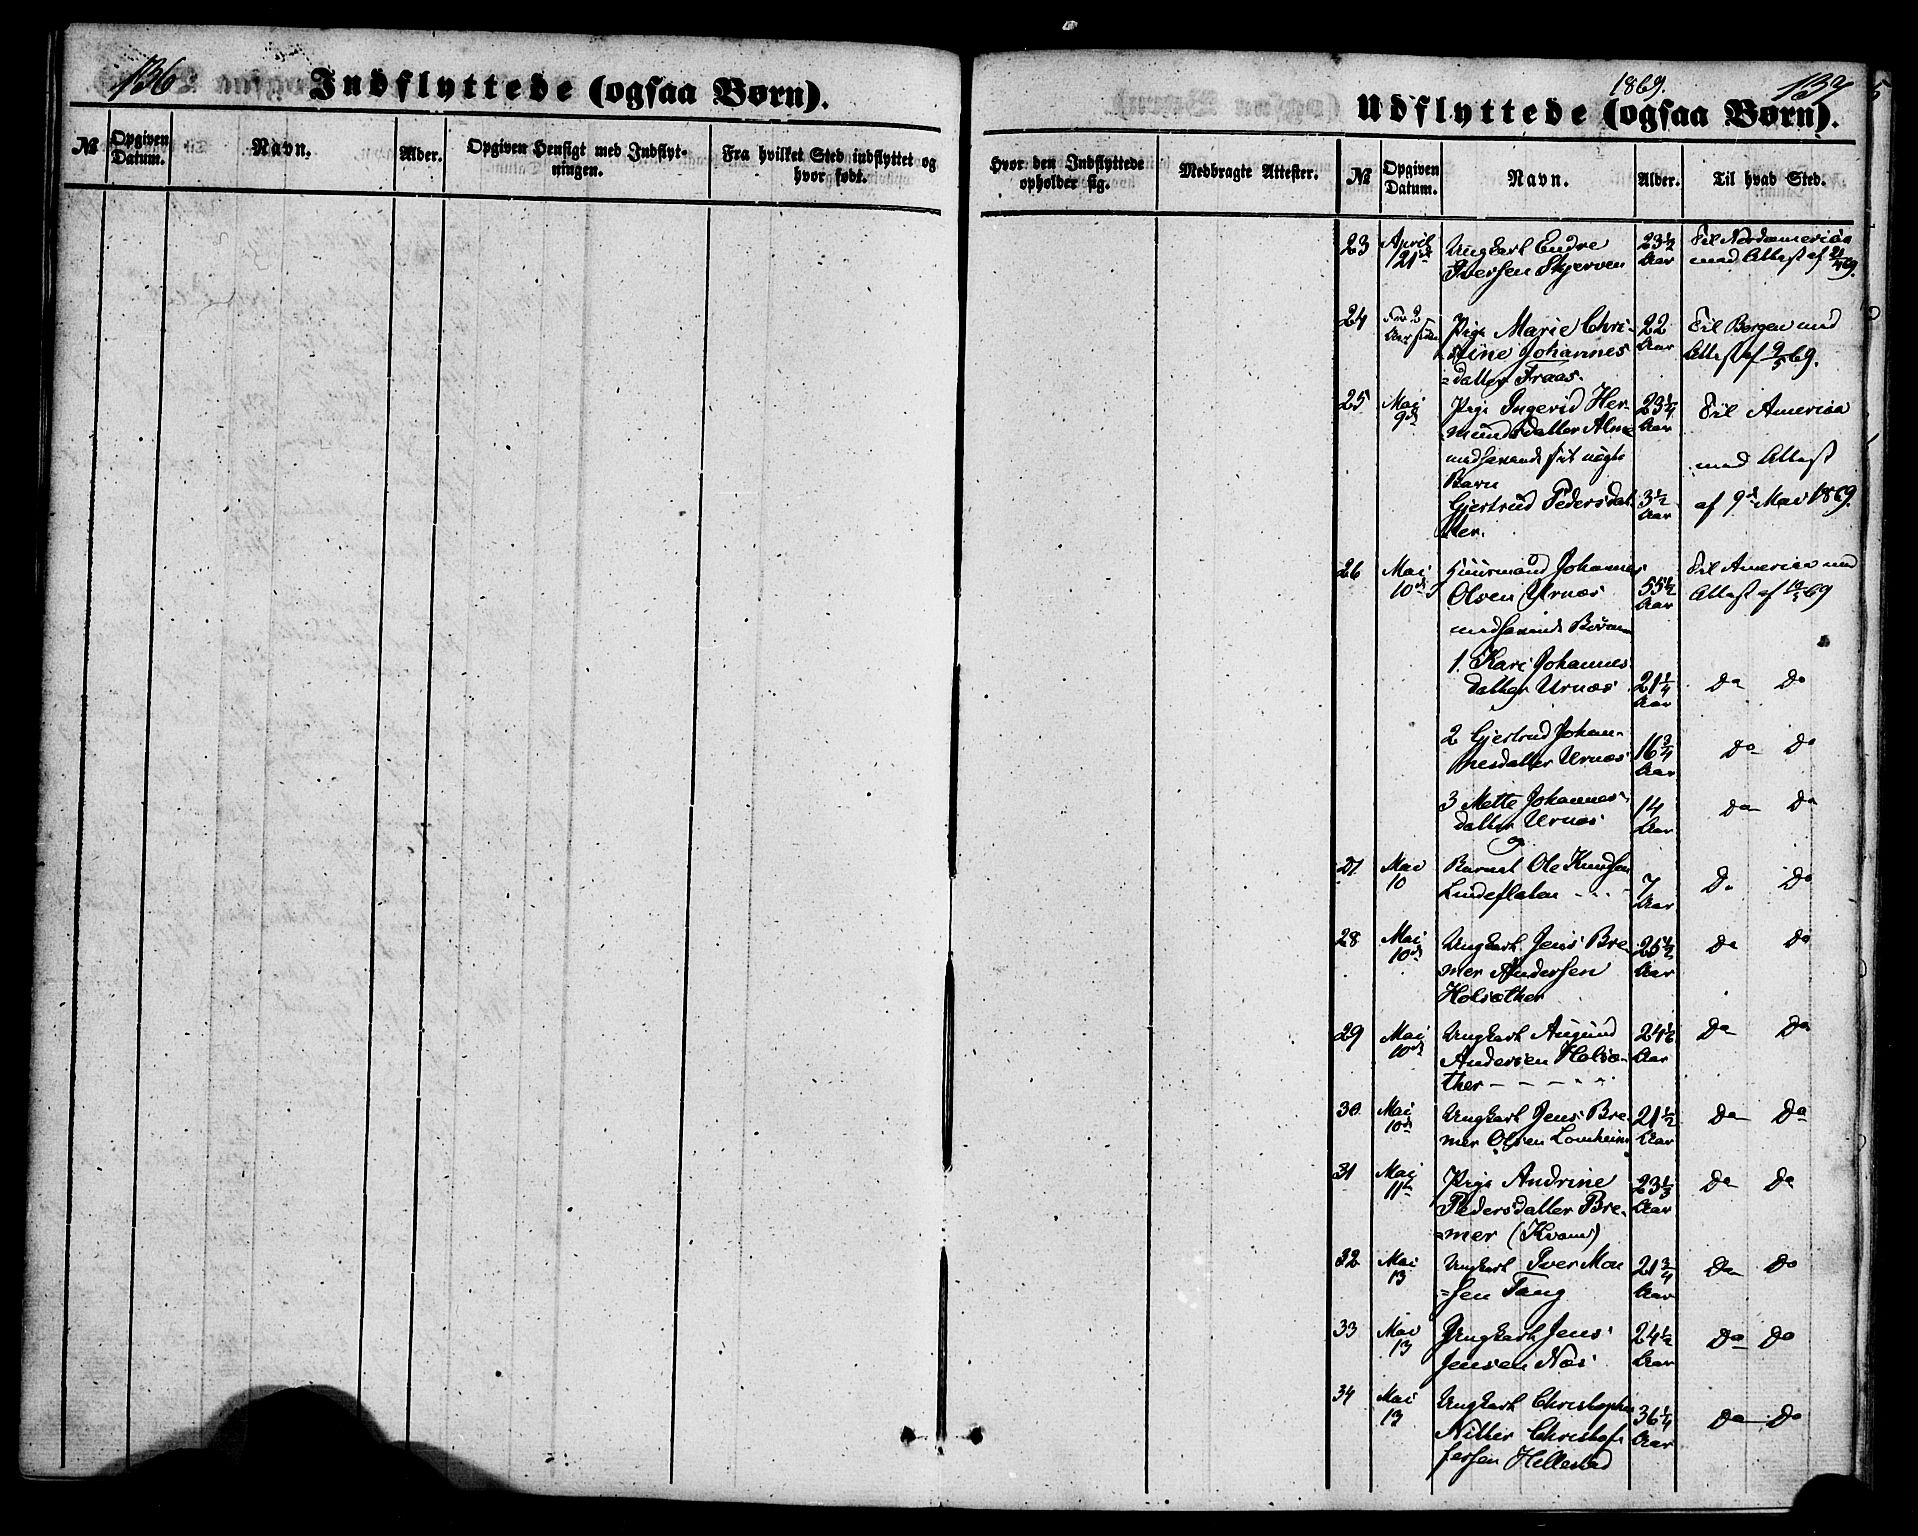 136
Indflyttede (ogsaa Børn).
№
Opgiven Datum.
Navn.
Alder.
Opgiven Hensigt med Indflyt-
ningen.
Fra hvilket Sted indflyttet og
hvor født.
1869.
137
Udflyttede (ogsaa Børn).
Hvor den Indflyttede
opholder sig.
Medbragte Attester.
№
Opgiven
Datum.
Navn.
Alder.
Til hvad Sted.
23 April Ungkarl Endre 23½ Til Nordamerica
21de Iversen Skjerven Aar med Attest af 21/4 69.
24 For 2 Pige Marie Chri- 22 Til Bergen med
Aar siden stine Johannes Aar Attest af 9/5 69.
=datter Fraas.
25 Mai Pige Ingerid Her- 23¼ Til America
9de mundsdatter Alme Aar
medhavende sit uægte med Attest
Barn
Gjertrud Pedersdat- 3½ af 9de Mai 1869.
ter. Aar
26 Mai Huusmand Johannes Til America med
10de Olsen Urnæs 55½ Attest af 10/5 69
Aar
medhavende Børnene
1. Kari Johannes
datter Urnæs 21¼ Do Do
Aar
2 Gjertrud Johan-
nesdatter Urnæs 16¾ Do Do
Aar
3 Mette Johannes- 14 Do Do
datter Urnæs Aar
og
27 Mai Barnet Ole Knudsen
10 Lindeflaten 7 Do Do
Aar
28 Mai Ungkarl Jens Bre- 25½ Do Do
10de mer Andersen Aar
Holsæther
29 Mai Ungkarl Augund 24 Do Do
10de Andersen Holsæ- Aar
ther
30 Mai Ungkarl Jens Bre- 21½ Do Do
10de mer Olsen Lomheim Aar
31 Mai Pige Andrine 23⅓ Do Do
11te Pedersdatter Bre- Aar
=mer (Kvam)
32 Mai Ungkarl Iver Mon 21¾ Do Do
13 =sen Tang Aar
33 Mai Ungkarl Jens 24½ Do Do
13 Jensen Næs Aar
34 Mai Ungkarl Christopher 36¼ Do Do
13 Nitter Christof Aar
fersen Hellestad